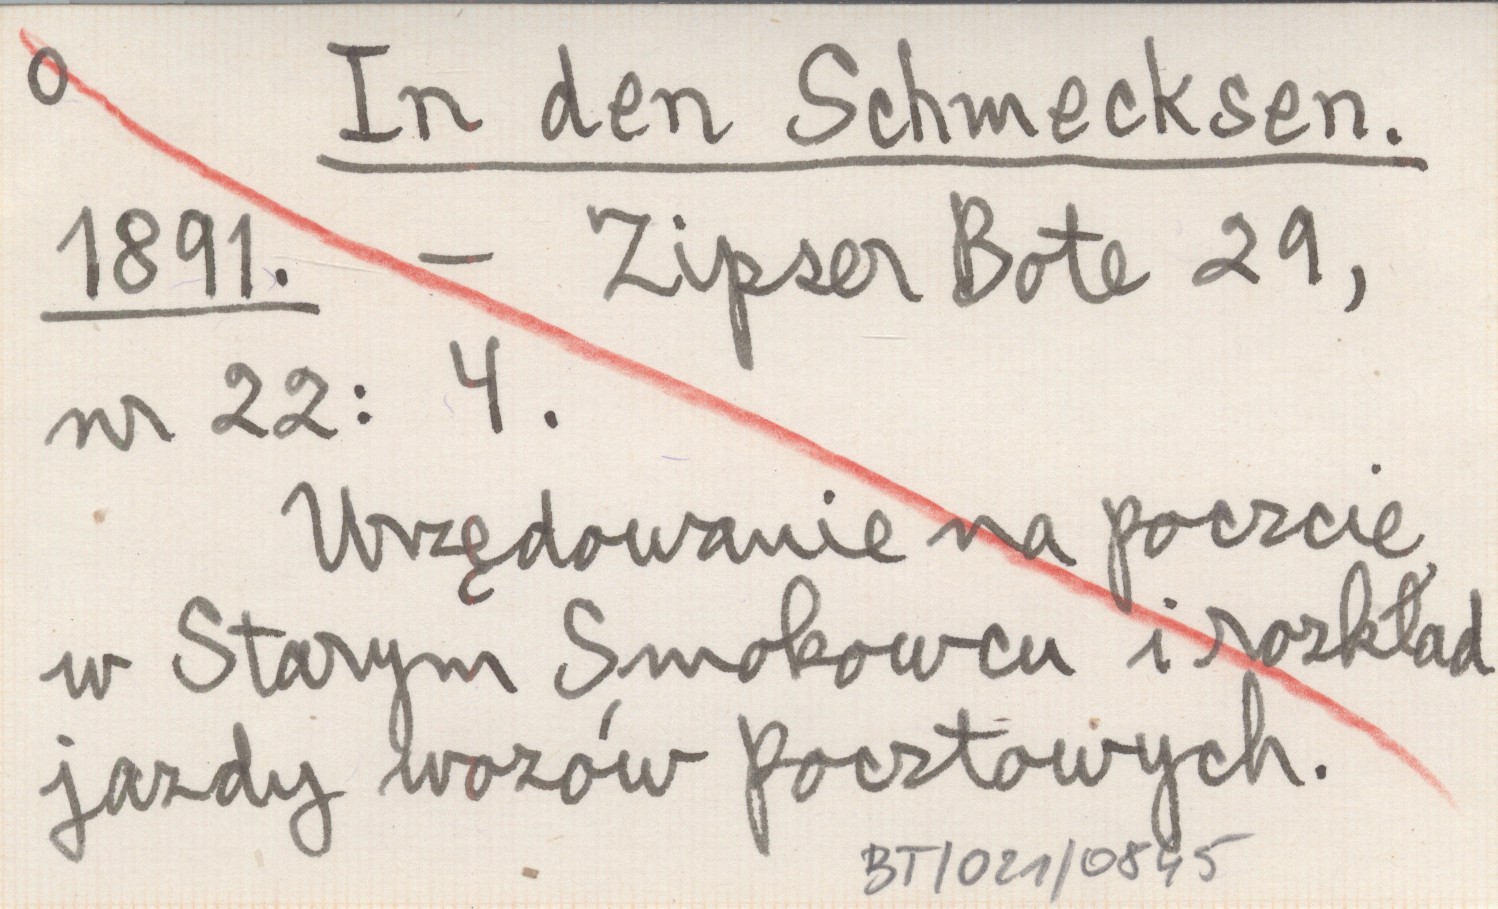 o In den Schmecksen.
1891. – Zipser Bote 29,
nr 22: 4.
Urzędowanie na poczcie
w Starym Smokowcu i rozkład
jazdy wozów pocztowych.
BT/021/0845